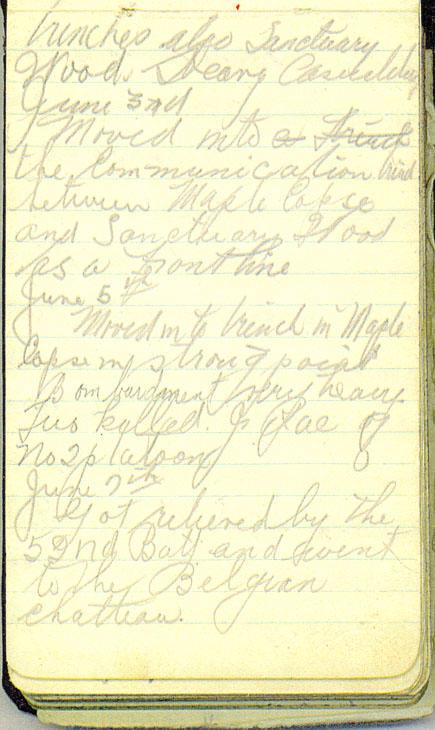 trenches also Sanctuary
Wood. Heavy Casualties
June 3rd
Moved into a Trench
the Communication trench
between Maple Copse
and Sanctuary Wood
as a frontline
June 5th
Moved into trench in Maple
Copse in strong point
Bombardment very heavy
Two killed. J Rae of
No 2 platoon
June 7th
Got relieved by the
52nd Batt and went
to the Belgian
chatteau.